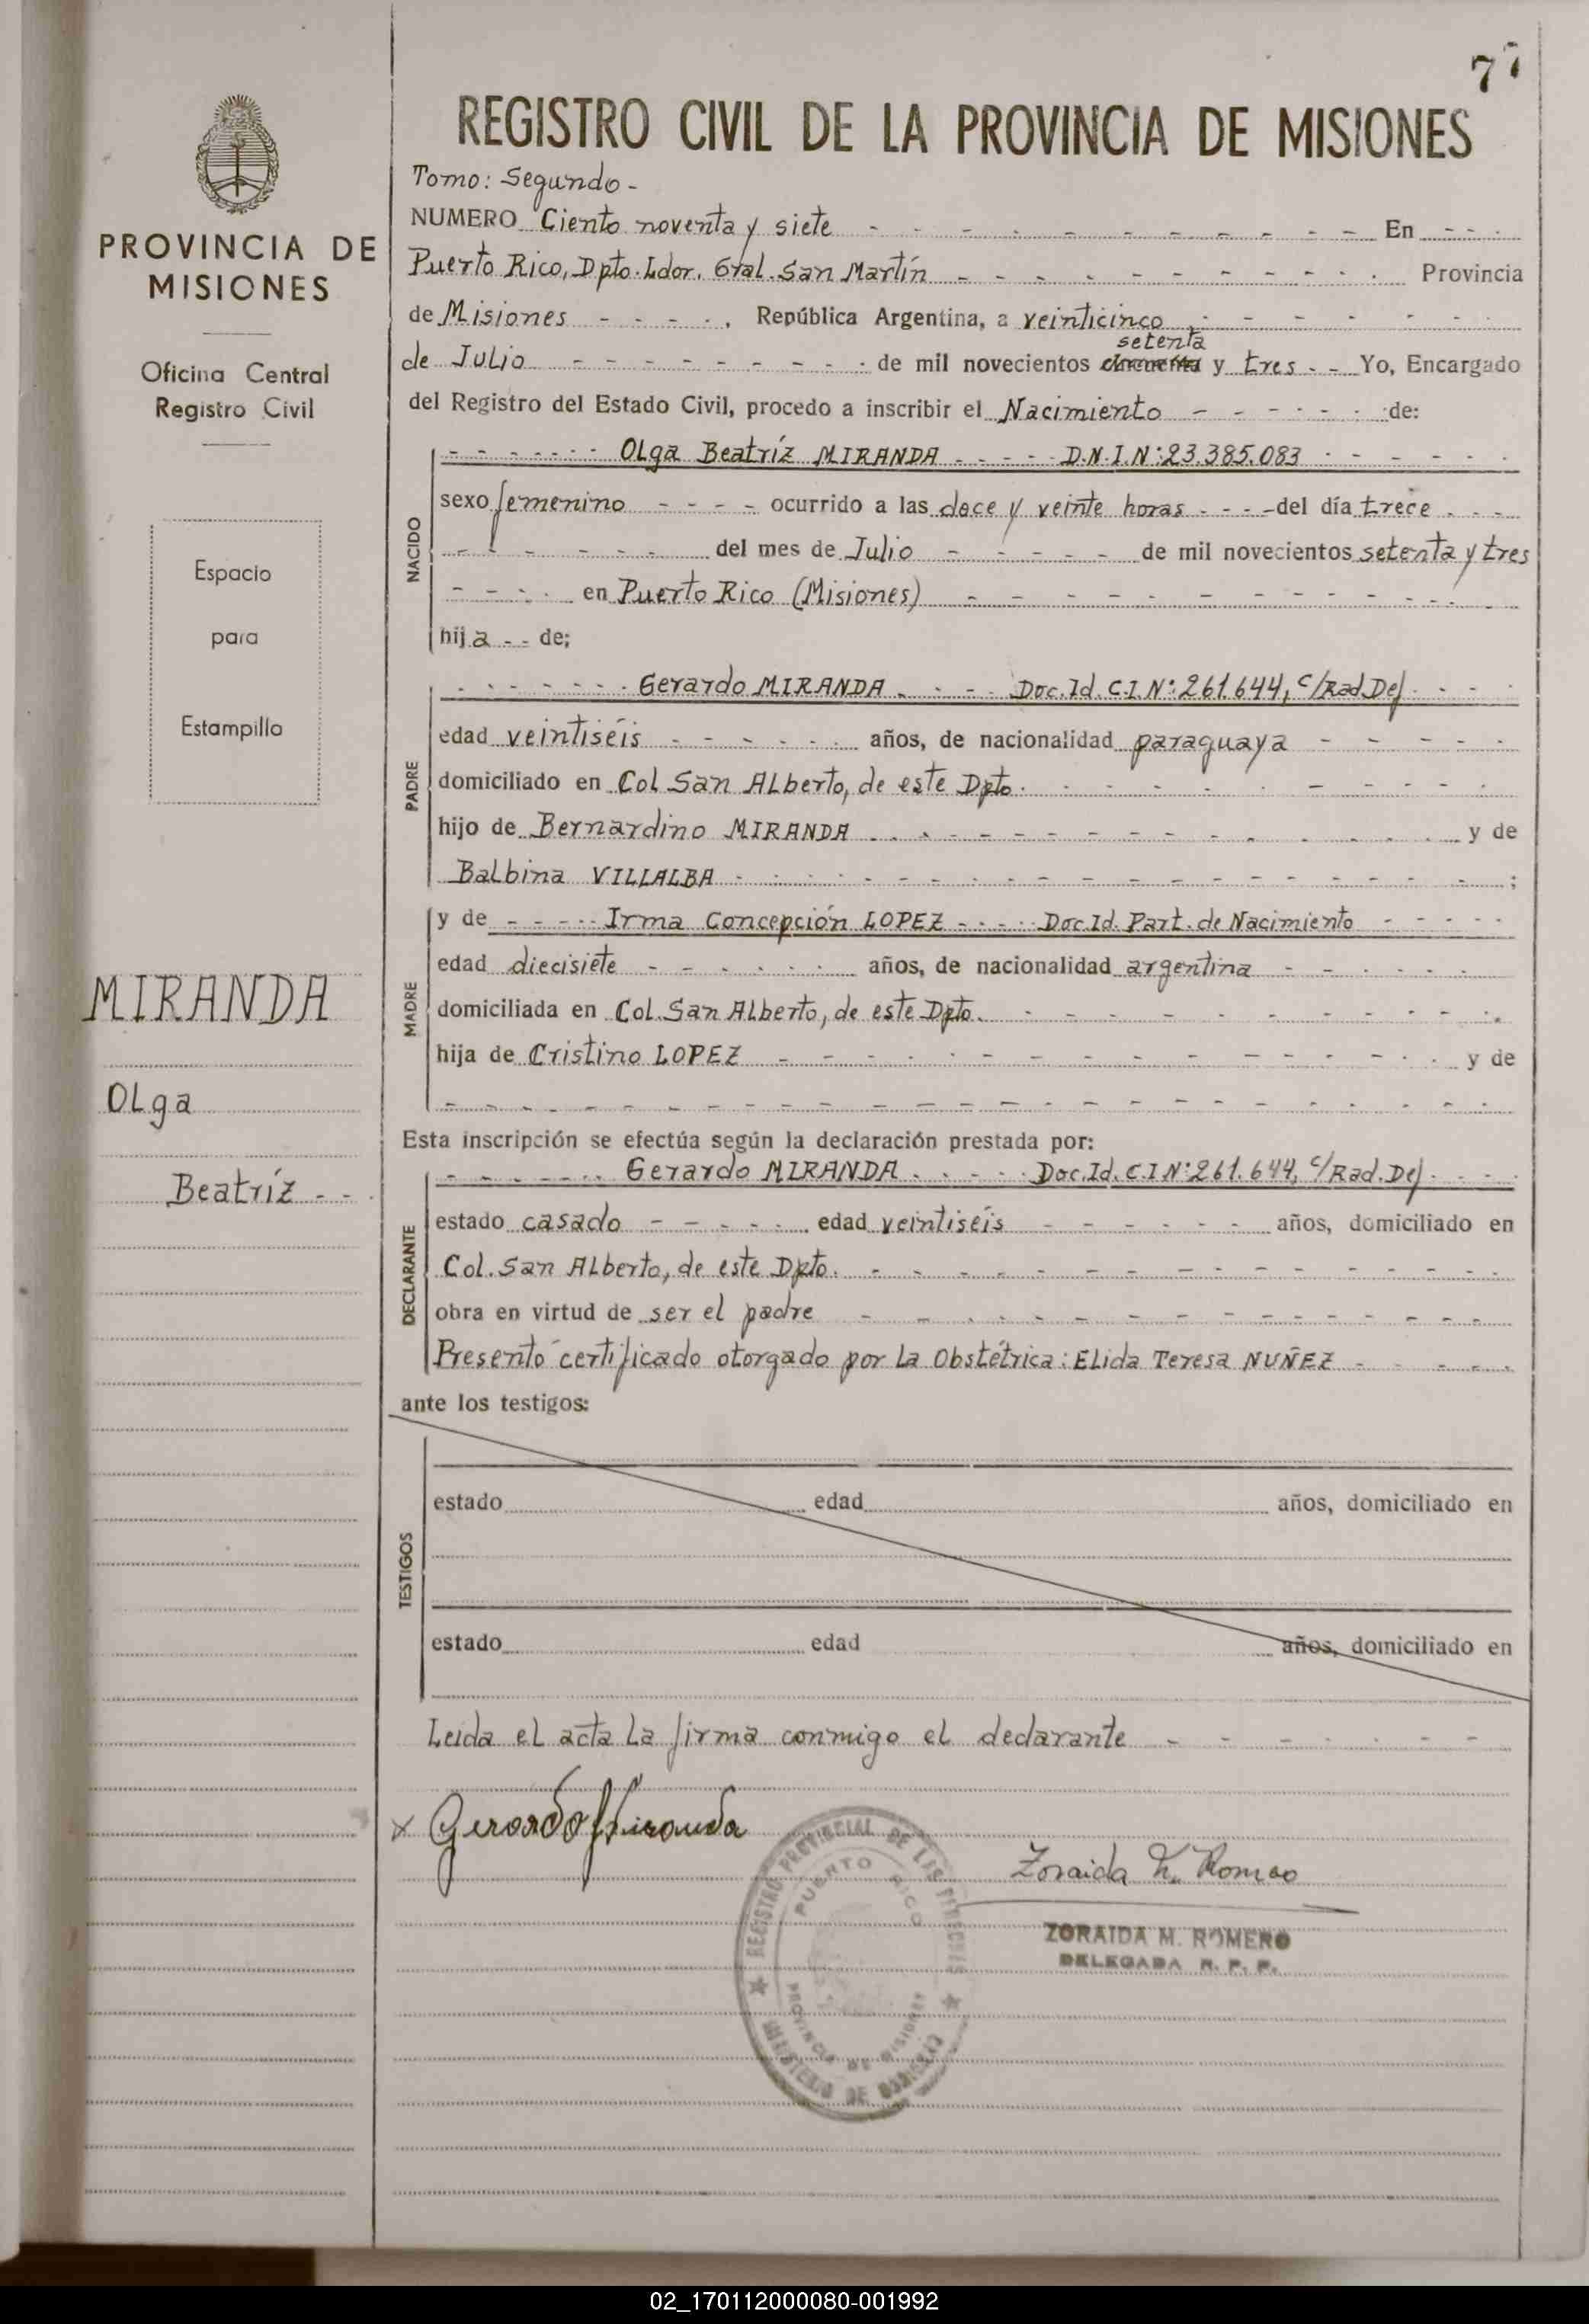 77
REGISTRO CIVIL DE LA PROVINCIA DE MISIONES
Tomo: Segundo -
PROVINCIA DE
MISIONES
Oficina Central
Registro Civil
Espacio
para
Estampilla
MIRANDA
Olga
Beatríz - -
NUMERO Ciento noventa y siete - - - - - - - - - - En - - -
Puerto Rico, Dpto. Ldor. Gral. San Martín - - - - - - - - - - Provincia
de Misiones - - - -, República Argentina, a veinticinco - - - - - -
setenta
de Julio - - - - - - - - - de mil novecientos y tres - - Yo, Encargado
del Registro del Estado Civil, procedo a inscribir el Nacimiento - - - - - - de:
NACIDO
- - - - - - Olga Beatríz MIRANDA - - - - D.N.I.Nº:23.385.083 - - - - - -
sexo femenino - - - - ocurrido a las doce y veinte horas - - - - del día trece - - -
- - - - - - - del mes de Julio - - - - - - de mil novecientos setenta y tres
- - - - en Puerto Rico (Misiones) - - - - - - - - - - - - -
hija - - de;
PADRE
- - - - - - - Gerardo MIRANDA - - - - Doc.Id. C.I.Nº:261.644, c/Rad.Def. - - -
edad veintiséis - - - - - - años, de nacionalidad paraguaya - - - - -
domiciliado en Col San Alberto, de este Dpto. - - - - - - - - -
hijo de Bernardino MIRANDA - - - - - - - - - - - - - y de
Balbina VILLALBA - - - - - - - - - - - - - - - - - ;
MADRE
y de - - - - - Irma Concepción LOPEZ - - - - - Doc.Id. Part. de Nacimiento - - - - -
edad diecisiete - - - - - - años, de nacionalidad argentina - - - - - -
domiciliada en Col. San Alberto, de este Dpto. - - - - - - - - - - -
hija de Cristino LOPEZ - - - - - - - - - - - - - - - y de
- - - - - - - - - - - - - - - - - - - - - - - -
Esta inscripción se efectúa según la declaración prestada por:
DECLARANTE
- - - - - - Gerardo MIRANDA - - - - - Doc.Id. C.I.Nº:261.644, c/Rad.Def. - - -
estado casado - - - - - edad veintiséis - - - - - - años, domiciliado en
Col. San Alberto, de este Dpto. - - - - - - - - - - - - - - -
obra en virtud de ser el padre - - - - - - - - - - - - -
Presentó certificado otorgado por la Obstétrica: Elida Teresa NUÑEZ - - - - -
ante los testigos:
TESTIGOS
estado edad años, domiciliado en
estado edad años, domiciliado en
Leída el acta la firma conmigo el declarante - - - - - - - -
x Gerardo Miranda
Zoraida M. Romero
REGISTRO PROVINCIAL DE LAS PERSONAS
PUERTO RICO
PROVINCIA DE MISIONES
MINISTERIO DE GOBIERNO
ZORAIDA M. ROMERO
DELEGADA R. P. P.
02_170112000080-001992